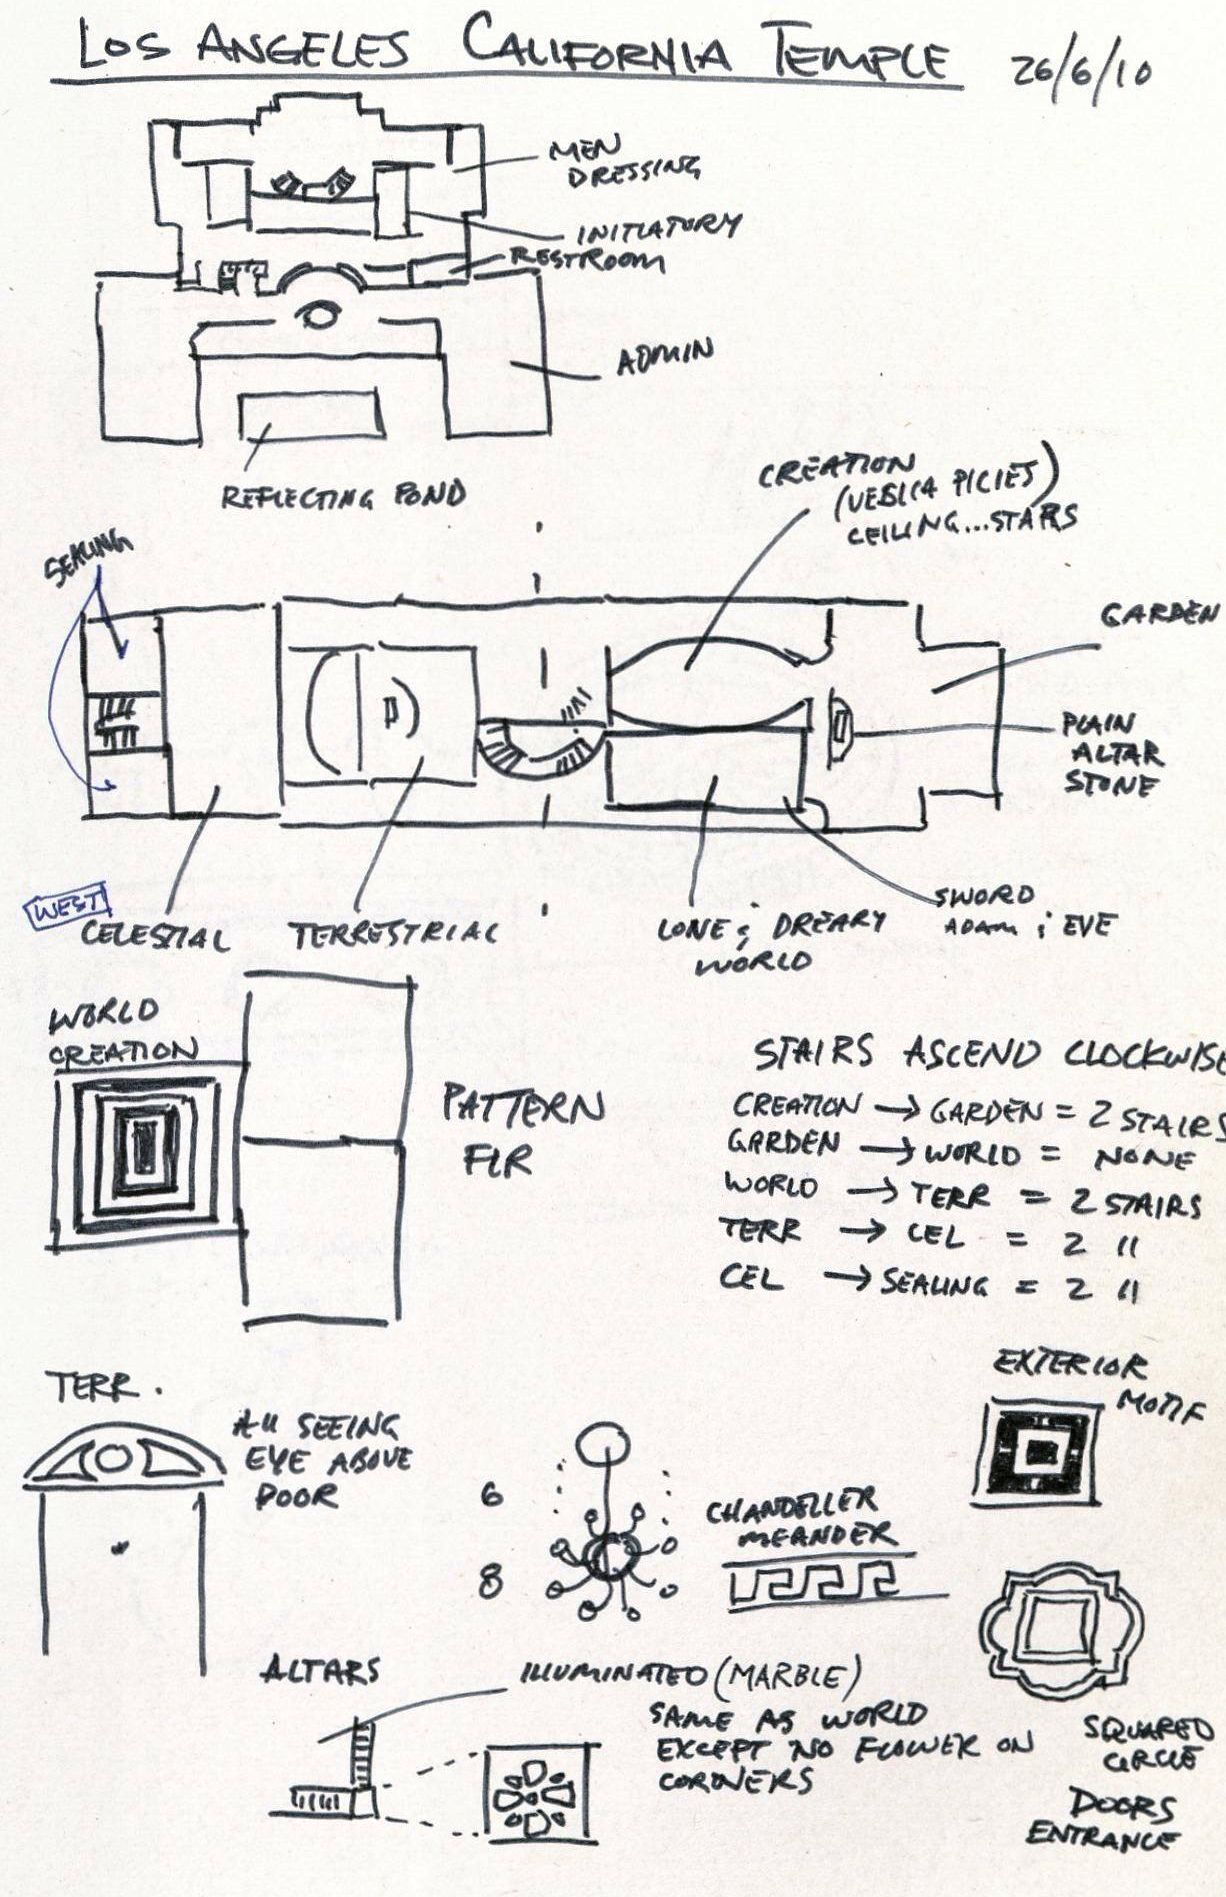 LOS ANGELES CALIFORNIA TEMPLE 26/6/10
MEN
DRESSING
INITIATORY
RESTROOM
ADMIN
REFLECTING POND
CREATION
(VESICA PICIES)
CEILING...STARS
SEALING
GARDEN
PLAIN
ALTAR
STONE
WEST
CELESTIAL
TERRESTRIAL
LONE & DREARY
WORLD
SWORD
ADAM & EVE
WORLD
CREATION
PATTERN
FLR
STAIRS ASCEND CLOCKWISE
CREATION → GARDEN = 2 STAIRS
GARDEN → WORLD = NONE
WORLD → TERR = 2 STAIRS
TERR → CEL = 2 "
CEL → SEALING = 2 "
TERR.
ALL SEEING
EYE ABOVE
DOOR
6
8
CHANDELLER
MEANDER
EXTERIOR
MOTIF
SQUARED
CIRCLE
DOORS
ENTRANCE
ALTARS
ILLUMINATED (MARBLE)
SAME AS WORLD
EXCEPT NO FLOWER ON
CORNERS